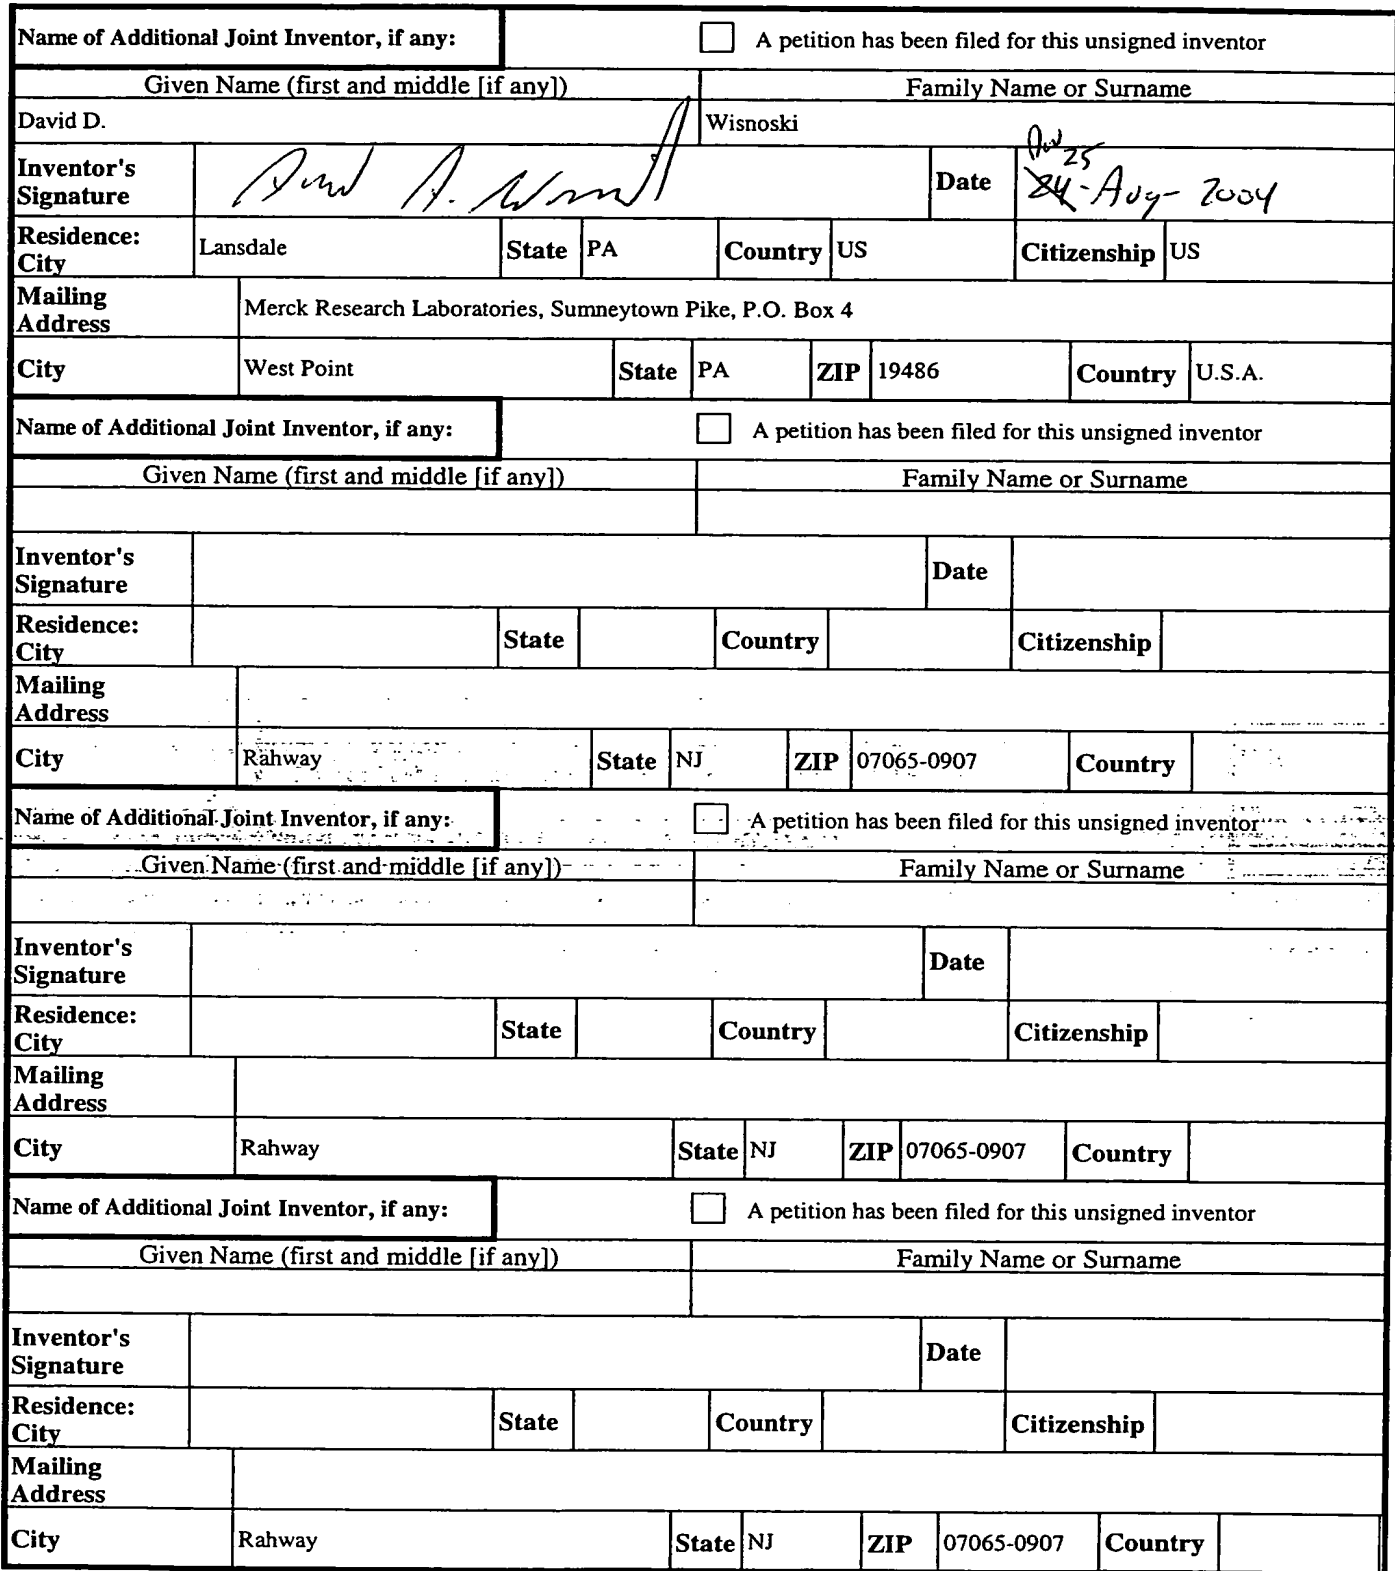 Name of Additional Joint Inventor, if any: A petition has been filed for this unsigned inventor
Given Name (first and middle [if any]) Family Name or Surname
David D. Wisnoski
Inventor's Signature Date 25 24-Aug-2004
Residence: City Lansdale State PA Country US Citizenship US
Mailing Address Merck Research Laboratories, Sumneytown Pike, P.O. Box 4
City West Point State PA ZIP 19486 Country U.S.A.
Name of Additional Joint Inventor, if any: A petition has been filed for this unsigned inventor
Given Name (first and middle [if any]) Family Name or Surname
Inventor's Signature Date
Residence: City State Country Citizenship
Mailing Address
City Rahway State NJ ZIP 07065-0907 Country
Name of Additional Joint Inventor, if any: A petition has been filed for this unsigned inventor
Given Name (first and middle [if any]) Family Name or Surname
Inventor's Signature Date
Residence: City State Country Citizenship
Mailing Address
City Rahway State NJ ZIP 07065-0907 Country
Name of Additional Joint Inventor, if any: A petition has been filed for this unsigned inventor
Given Name (first and middle [if any]) Family Name or Surname
Inventor's Signature Date
Residence: City State Country Citizenship
Mailing Address
City Rahway State NJ ZIP 07065-0907 Country